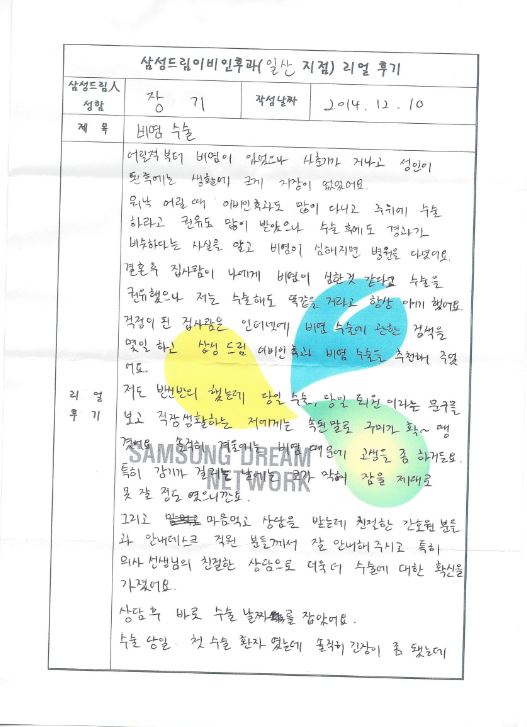 삼성드림이비인후과(일산 지점) 리얼 후기
삼성드림人
성함
장 기
작성날짜
2014. 12. 10
제 목
비염 수술
리 얼
후 기
어릴적부터 비염이 있었으나 사춘기가 지나고 성인이
된후에는 생활에 크게 지장이 없었어요.
워낙 어릴 때 이비인후과도 많이 다니고 주위에 수술
하라고 권유도 많이 받았으나 수술 후에도 경과가
비슷하다는 사실을 알고 비염이 심해지면 병원을 다녔어요.
결혼후 집사람이 나에게 비염이 심한것 같다고 수술을
권유했으나 저는 수술해도 똑같을 거라고 항상 얘기 했어요.
걱정이 된 집사람은 인터넷에 비염 수술에 관한 검색을
몇일 하고 삼성 드림 이비인후과 비염 수술을 추천해 주었
어요.
저도 반신반의 했는데 당일 수술, 당일 퇴원 이라는 문구를
보고 직장생활하는 저에게는 속된말로 구미가 확~ 땡
겼어요. 솔직히 겨울에는 비염 때문에 고생을 좀 하거든요.
특히 감기가 걸리는 날에는 코가 막혀 잠을 제대로
못 잘 정도 였으니깐요.
그리고 마음먹고 상담을 받는데 친절한 간호원 분들
과 안내데스크 직원 분들께서 잘 안내해 주시고 특히
의사 선생님의 친절한 상담으로 더욱 더 수술에 대한 확신을
가졌어요.
상담 후 바로 수술 날짜를 잡았어요.
수술 당일. 첫 수술 환자 였는데 솔직히 긴장이 좀 됐는데
SAMSUNG DREAM
NETWORK